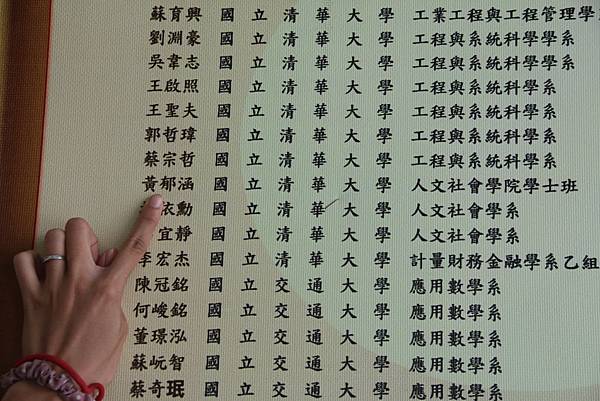 蘇育興 國立清華大學 工業工程與工程管理學
劉淵豪 國立清華大學 工程與系統科學學系
吳韋志 國立清華大學 工程與系統科學學系
王啟照 國立清華大學 工程與系統科學系
王聖夫 國立清華大學 工程與系統科學系
郭哲瑋 國立清華大學 工程與系統科學系
蔡宗哲 國立清華大學 工程與系統科學系
黃郁涵 國立清華大學 人文社會學院學士班
依勳 國立清華大學 人文社會學系
宜靜 國立清華大學 人文社會學系
李宏杰 國立清華大學 計量財務金融學系乙組
陳冠銘 國立交通大學 應用數學系
何峻銘 國立交通大學 應用數學系
董璟泓 國立交通大學 應用數學系
蘇岏智 國立交通大學 應用數學系
蔡奇珉 國立交通大學 應用數學系